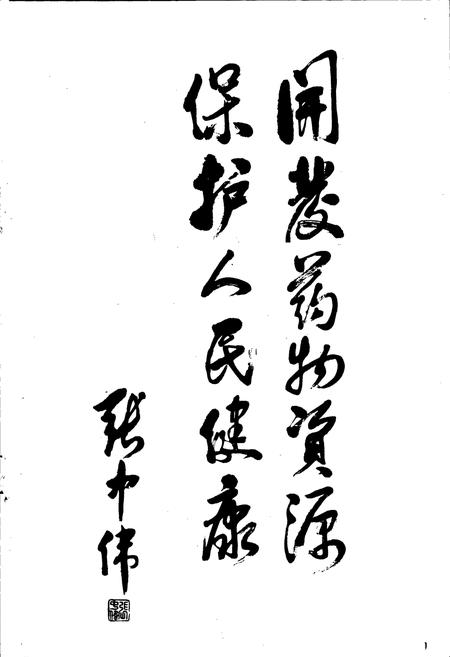 開發药物資源
保护人民健康
张中伟
1